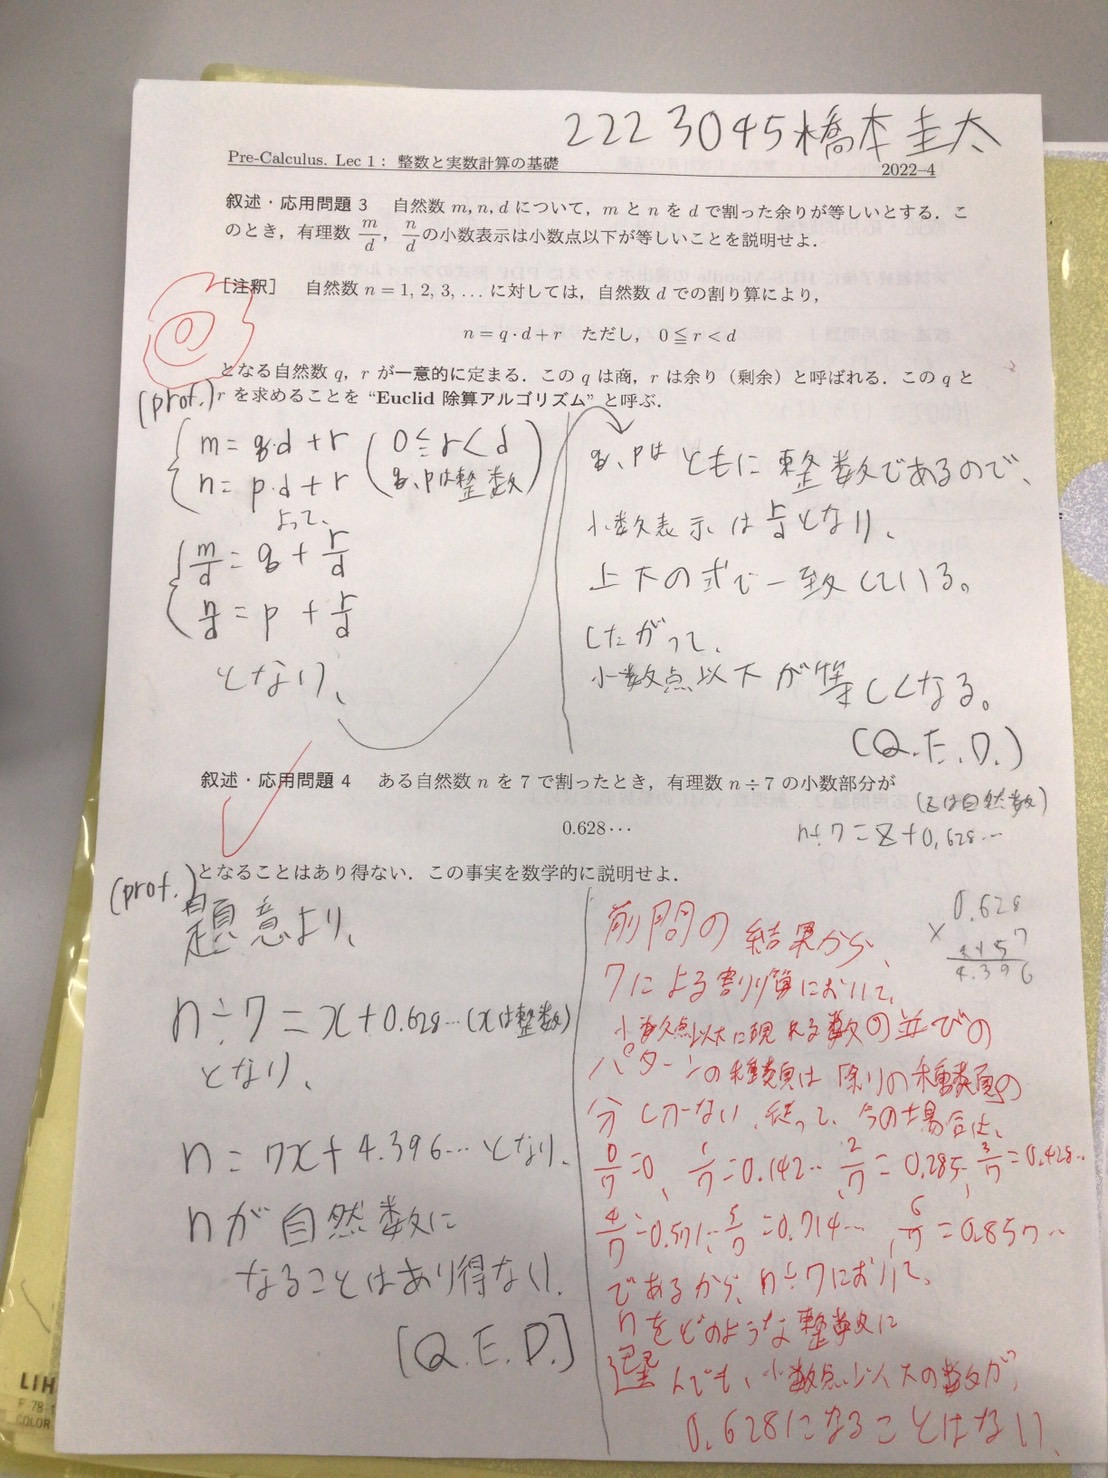 2223045橋本圭太
Pre-Calculus. Lec 1: 整数と実数計算の基礎
2022–4
叙述・応用問題 3 自然数 m, n, d について，m と n を d で割った余りが等しいとする．こ
のとき，有理数 m/d, n/d の小数表示は小数点以下が等しいことを説明せよ．
［注釈］ 自然数 n = 1, 2, 3, ... に対しては，自然数 d での割り算により，
n = q・d + r ただし， 0 ≦ r < d
となる自然数 q, r が一意的に定まる．この q は商，r は余り（剰余）と呼ばれる．この q と
r を求めることを “Euclid 除算アルゴリズム” と呼ぶ．
(prof.)
m = q・d + r (0 ≦ r < d
n = p・d + r q、pは整数)
よって、
m/d = q + r/d
n/d = p + r/d
となり、
q、pは ともに整数であるので、
小数表示は r/d となり、
上下の式で一致している。
したがって、
小数点以下が等しくなる。
(Q.E.D.)
叙述・応用問題 4 ある自然数 n を 7 で割ったとき，有理数 n ÷ 7 の小数部分が
0.628・・・
(Zは自然数)
n÷7=Z+0,628…
となることはあり得ない．この事実を数学的に説明せよ．
(prof.)
題意より、
n÷7=x+0.628…(xは整数)
となり、
n=7x+4.396…となり、
nが自然数に
なることはあり得ない.
[Q.E.D.]
0.628
× 7
4.396
前問の結果から、
7による割り算において、
小数点以下に現れる数の並びの
パターンの種類は除りの種類の
分しかない、従って、今の場合は、
0/7=0、1/7=0.142… 2/7=0.285、3/7=0.428…
4/7=0.571… 5/7=0.714…, 6/7=0.857…
であるから、n÷7において、
nをどのような整数に
選んでも、小数点以下の数が
0.628になることはない、
LIH